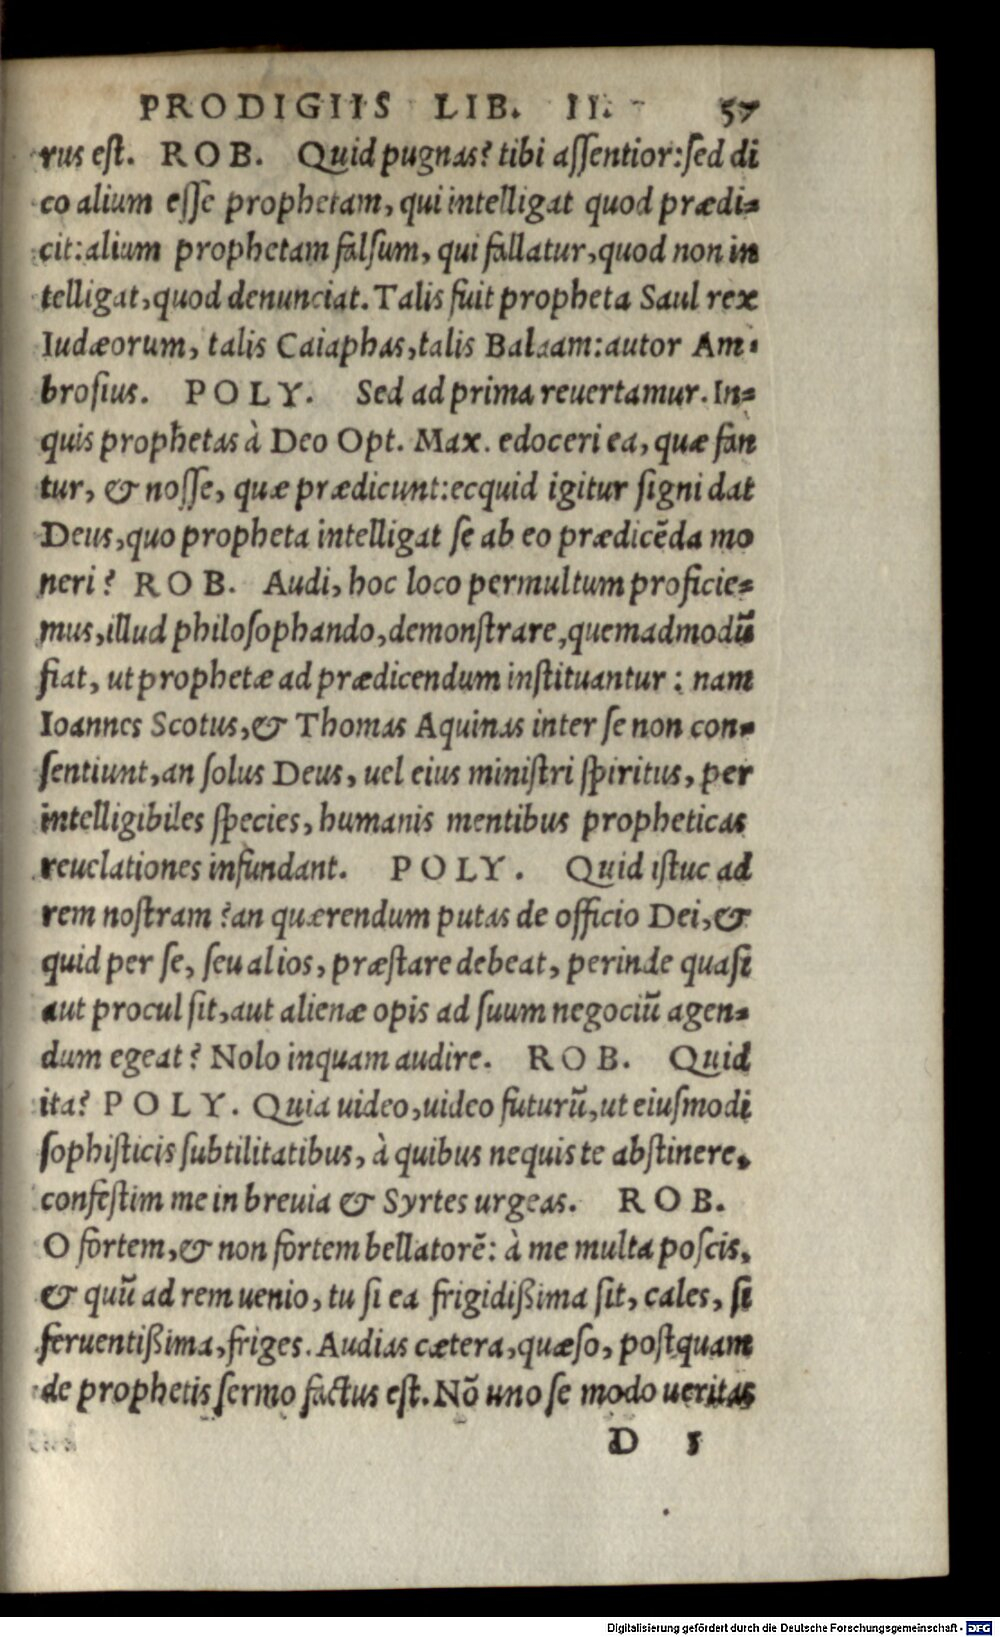 PRODIGIIS LIB. II. 57
rus est. ROB. Quid pugnas? tibi aſſentior:ſed di
co alium eſſe prophetam, qui intelligat quod prædi-
cit:alium prophetam falſum, qui fallatur,quod non in
telligat,quod denunciat. Talis fuit propheta Saul rex
Iudæorum, talis Caiaphas,talis Balaam:autor Am-
broſius. POLY. Sed ad prima reuertamur. In-
quis prophetas à Deo Opt. Max. edoceri ea, quæ fan
tur, & noſſe, quæ prædicunt:ecquid igitur ſigni dat
Deus,quo propheta intelligat ſe ab eo prædicẽda mo
neri? ROB. Audi, hoc loco permultum proficie-
mus,illud philoſophando,demonſtrare,quemadmodũ
fiat, ut prophetæ ad prædicendum inſtituantur : nam
Ioannes Scotus,& Thomas Aquinas inter ſe non con-
ſentiunt,an ſolus Deus, uel eius miniſtri ſpiritus, per
intelligibiles ſpecies, humanis mentibus propheticas
reuelationes infundant. POLY. Quid iſtuc ad
rem noſtram ?an quærendum putas de officio Dei,&
quid per ſe, ſeu alios, præſtare debeat, perinde quaſi
aut procul ſit,aut alienæ opis ad ſuum negociũ agen-
dum egeat? Nolo inquam audire. ROB. Quid
ita? POLY. Quia uideo,uideo futurũ,ut eiuſmodi
ſophiſticis ſubtilitatibus, à quibus nequis te abſtinere,
confeſtim me in breuia & Syrtes urgeas. ROB.
O fortem,& non fortem bellatorẽ: à me multa poſcis,
& quũ ad rem uenio, tu ſi ea frigidißima ſit, cales, ſi
feruentißima,friges. Audias cætera,quæſo, poſtquam
de prophetis ſermo factus eſt. Nõ uno ſe modo ueritas
D 5
Digitalisierung gefördert durch die Deutsche Forschungsgemeinschaft - DFG